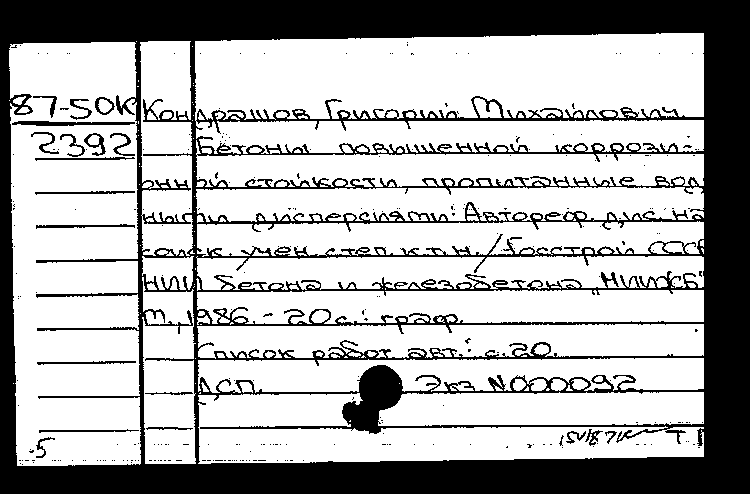 87-50К Кондрашов, Григорий Михайлович.
2392 Бетоны повышенной коррози-
онной стойкости, пропитанные вод
ными дисперсиями: Автореф. дис. на
соиск. учен. степ. к.т.н. / Госстрой СССР
НИИ бетона и железобетона „НИИЖБ"
М., 1986. - 20 с.: граф.
Список работ авт.: с. 20.
ДСП. Экз. N000092
5